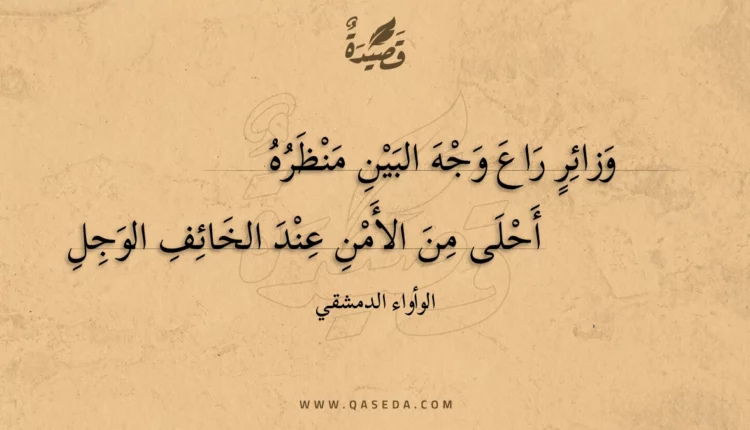 قَصِيدَةٌ
وَزائِرٍ رَاعَ وَجْهَ البَيْنِ مَنْظَرُهُ
أَحْلَى مِنَ الأَمْنِ عِنْدَ الخَائِفِ الوَجِلِ
الوأواء الدمشقي
WWW.QASEDA.COM